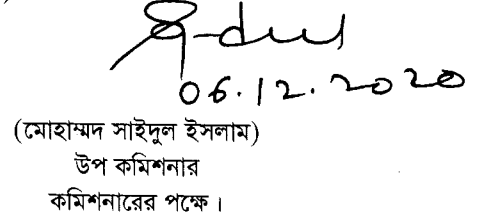 06.12.2020
(মোহাম্মদ সাইদুল ইসলাম)
উপ কমিশনার
কমিশনারের পক্ষে।